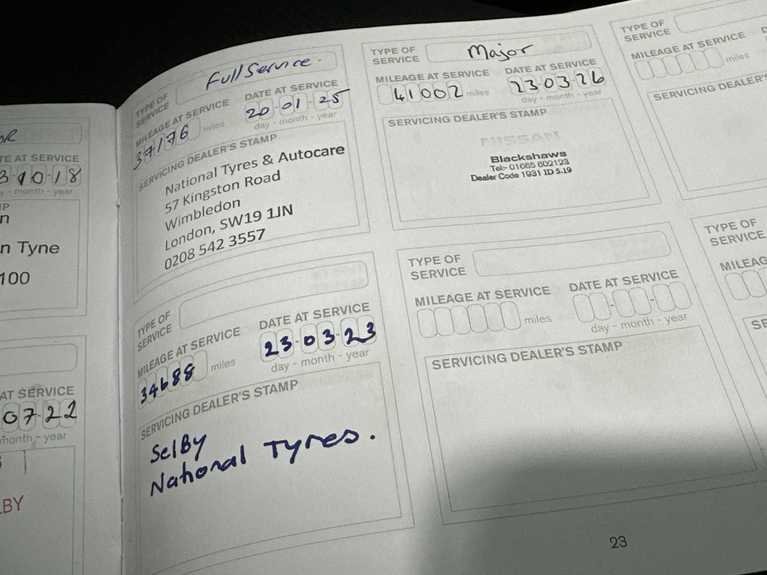 TE AT SERVICE
3 10 18
month - year
n Tyne
100
AT SERVICE
07 22
month - year
BY
TYPE OF
SERVICE
Full Service.
MILEAGE AT SERVICE
37176 miles
DATE AT SERVICE
20-01-25
day - month - year
SERVICING DEALER'S STAMP
National Tyres & Autocare
57 Kingston Road
Wimbledon
London, SW19 1JN
0208 542 3557
TYPE OF
SERVICE
MILEAGE AT SERVICE
34688 miles
DATE AT SERVICE
23-03-23
day - month - year
SERVICING DEALER'S STAMP
SelBy
National Tyres.
TYPE OF
SERVICE
Major
MILEAGE AT SERVICE
41002 miles
DATE AT SERVICE
230326
day - month - year
SERVICING DEALER'S STAMP
NISSAN
Blackshaws
Tel:- 01665 602123
Dealer Code 1931 ID 5.19
TYPE OF
SERVICE
MILEAGE AT SERVICE
miles
DATE AT SERVICE
day - month - year
SERVICING DEALER'S STAMP
TYPE OF
SERVICE
MILEAGE AT SERVICE
miles
SERVICING DEALER'S
TYPE OF
SERVICE
MILEAG
SE
23